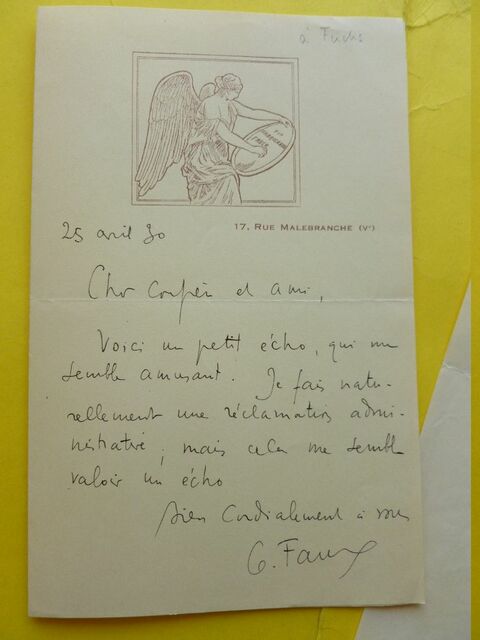 à Fuchs
17, RUE MALEBRANCHE (Vᵉ)
25 avril 30
Cher confrère et ami,
Voici un petit écho, qui me
semble amusant. Je fais natu-
rellement une réclamation admi-
nistrative, mais cela me semble
valoir un écho
Bien cordialement à vous
G.